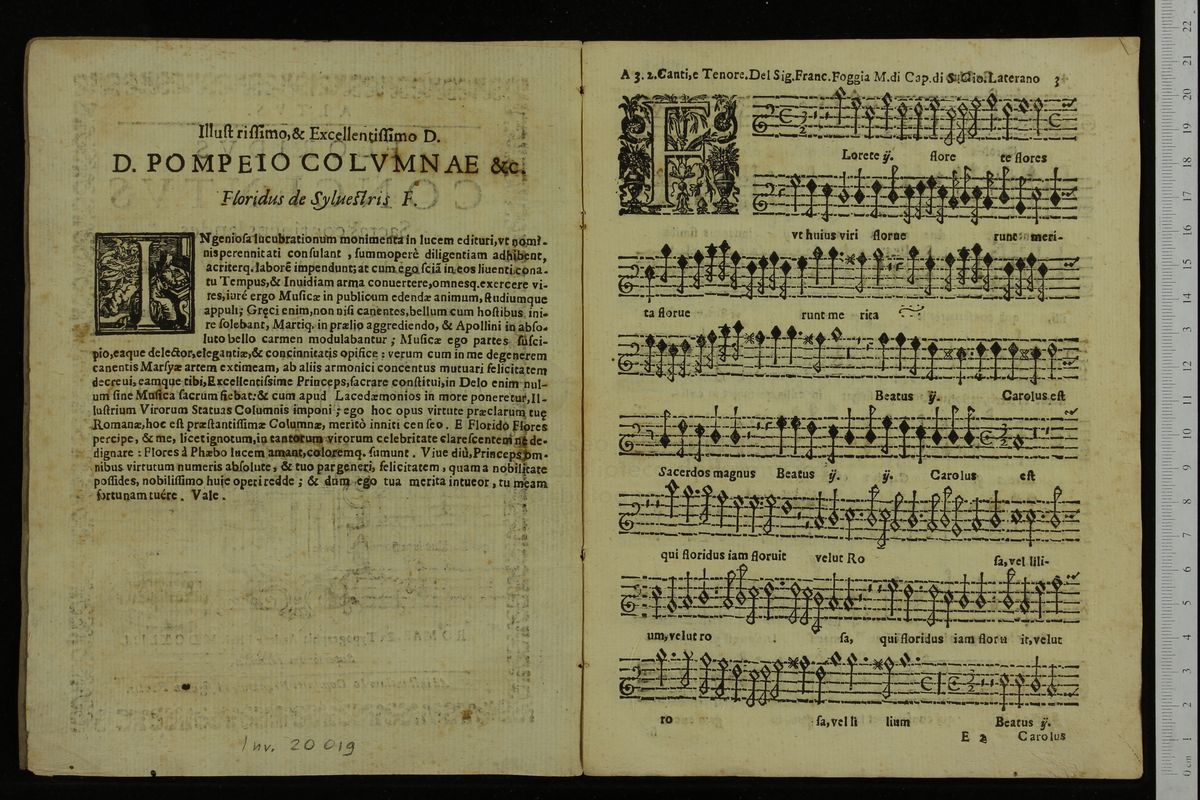 Illustrissimo, & Excellentissimo D.
D. POMPEIO COLVMNAE &c.
Floridus de Syluestris F.
INgeniosa lucubrationum monimenta in lucem edituri, vt nomi-
nis perennitati consulant, summoperè diligentiam adhibent,
acriterq. laborē impendunt; at cum ego sciā in eos liuenti cona-
tu Tempus, & Inuidiam arma conuertere, omnesq. exercere vi-
res, iurè ergo Musicæ in publicum edendæ animum, studiumque
appuli; Gręci enim, non nisi canentes, bellum cum hostibus ini-
re solebant, Martiq. in prælio aggrediendo, & Apollini in abso-
luto bello carmen modulabantur; Musicæ ego partes suscì-
pio, eaque delector, elegantiæ, & concinnitatis opifice: verum cum in me degenerem
canentis Marsyæ artem extimeam, ab aliis armonici concentus mutuari felicitatem
decreui, eamque tibi, Excellentissime Princeps, sacrare constitui, in Delo enim nul-
lum sine Musica sacrum fiebat: & cum apud Lacedæmonios in more poneretur, Il-
lustrium Virorum Statuas Columnis imponi; ego hoc opus virtute præclarum tuę
Romanæ, hoc est præstantissimæ Columnæ, meritò inniti censeo. E Florido Flores
percipe, & me, licet ignotum, in tantorum virorum celebritate clarescentem ne de-
dignare: Flores à Phæbo lucem amant, coloremq. sumunt. Viue diù, Princeps om-
nibus virtutum numeris absolute, & tuo par generi, felicitatem, quam a nobilitate
possides, nobilissimo huic operi redde; & dum ego tua merita intueor, tu meam
fortunam tuére. Vale.
Inv. 20019
A 3. 2. Canti, e Tenore. Del Sig. Franc. Foggia M. di Cap. di S. Gio. Laterano 3
FLorete ij. flore te flores
vt huius viri florue runt meri-
ta florue runt me rita
Beatus ij. Carolus est
Sacerdos magnus Beatus ij. ij. Carolus est
qui floridus iam floruit velut Ro sa, vel lili-
um, velut ro sa, qui floridus iam floru it, velut
ro sa, vel li lium Beatus ij.
E 2 Carolus